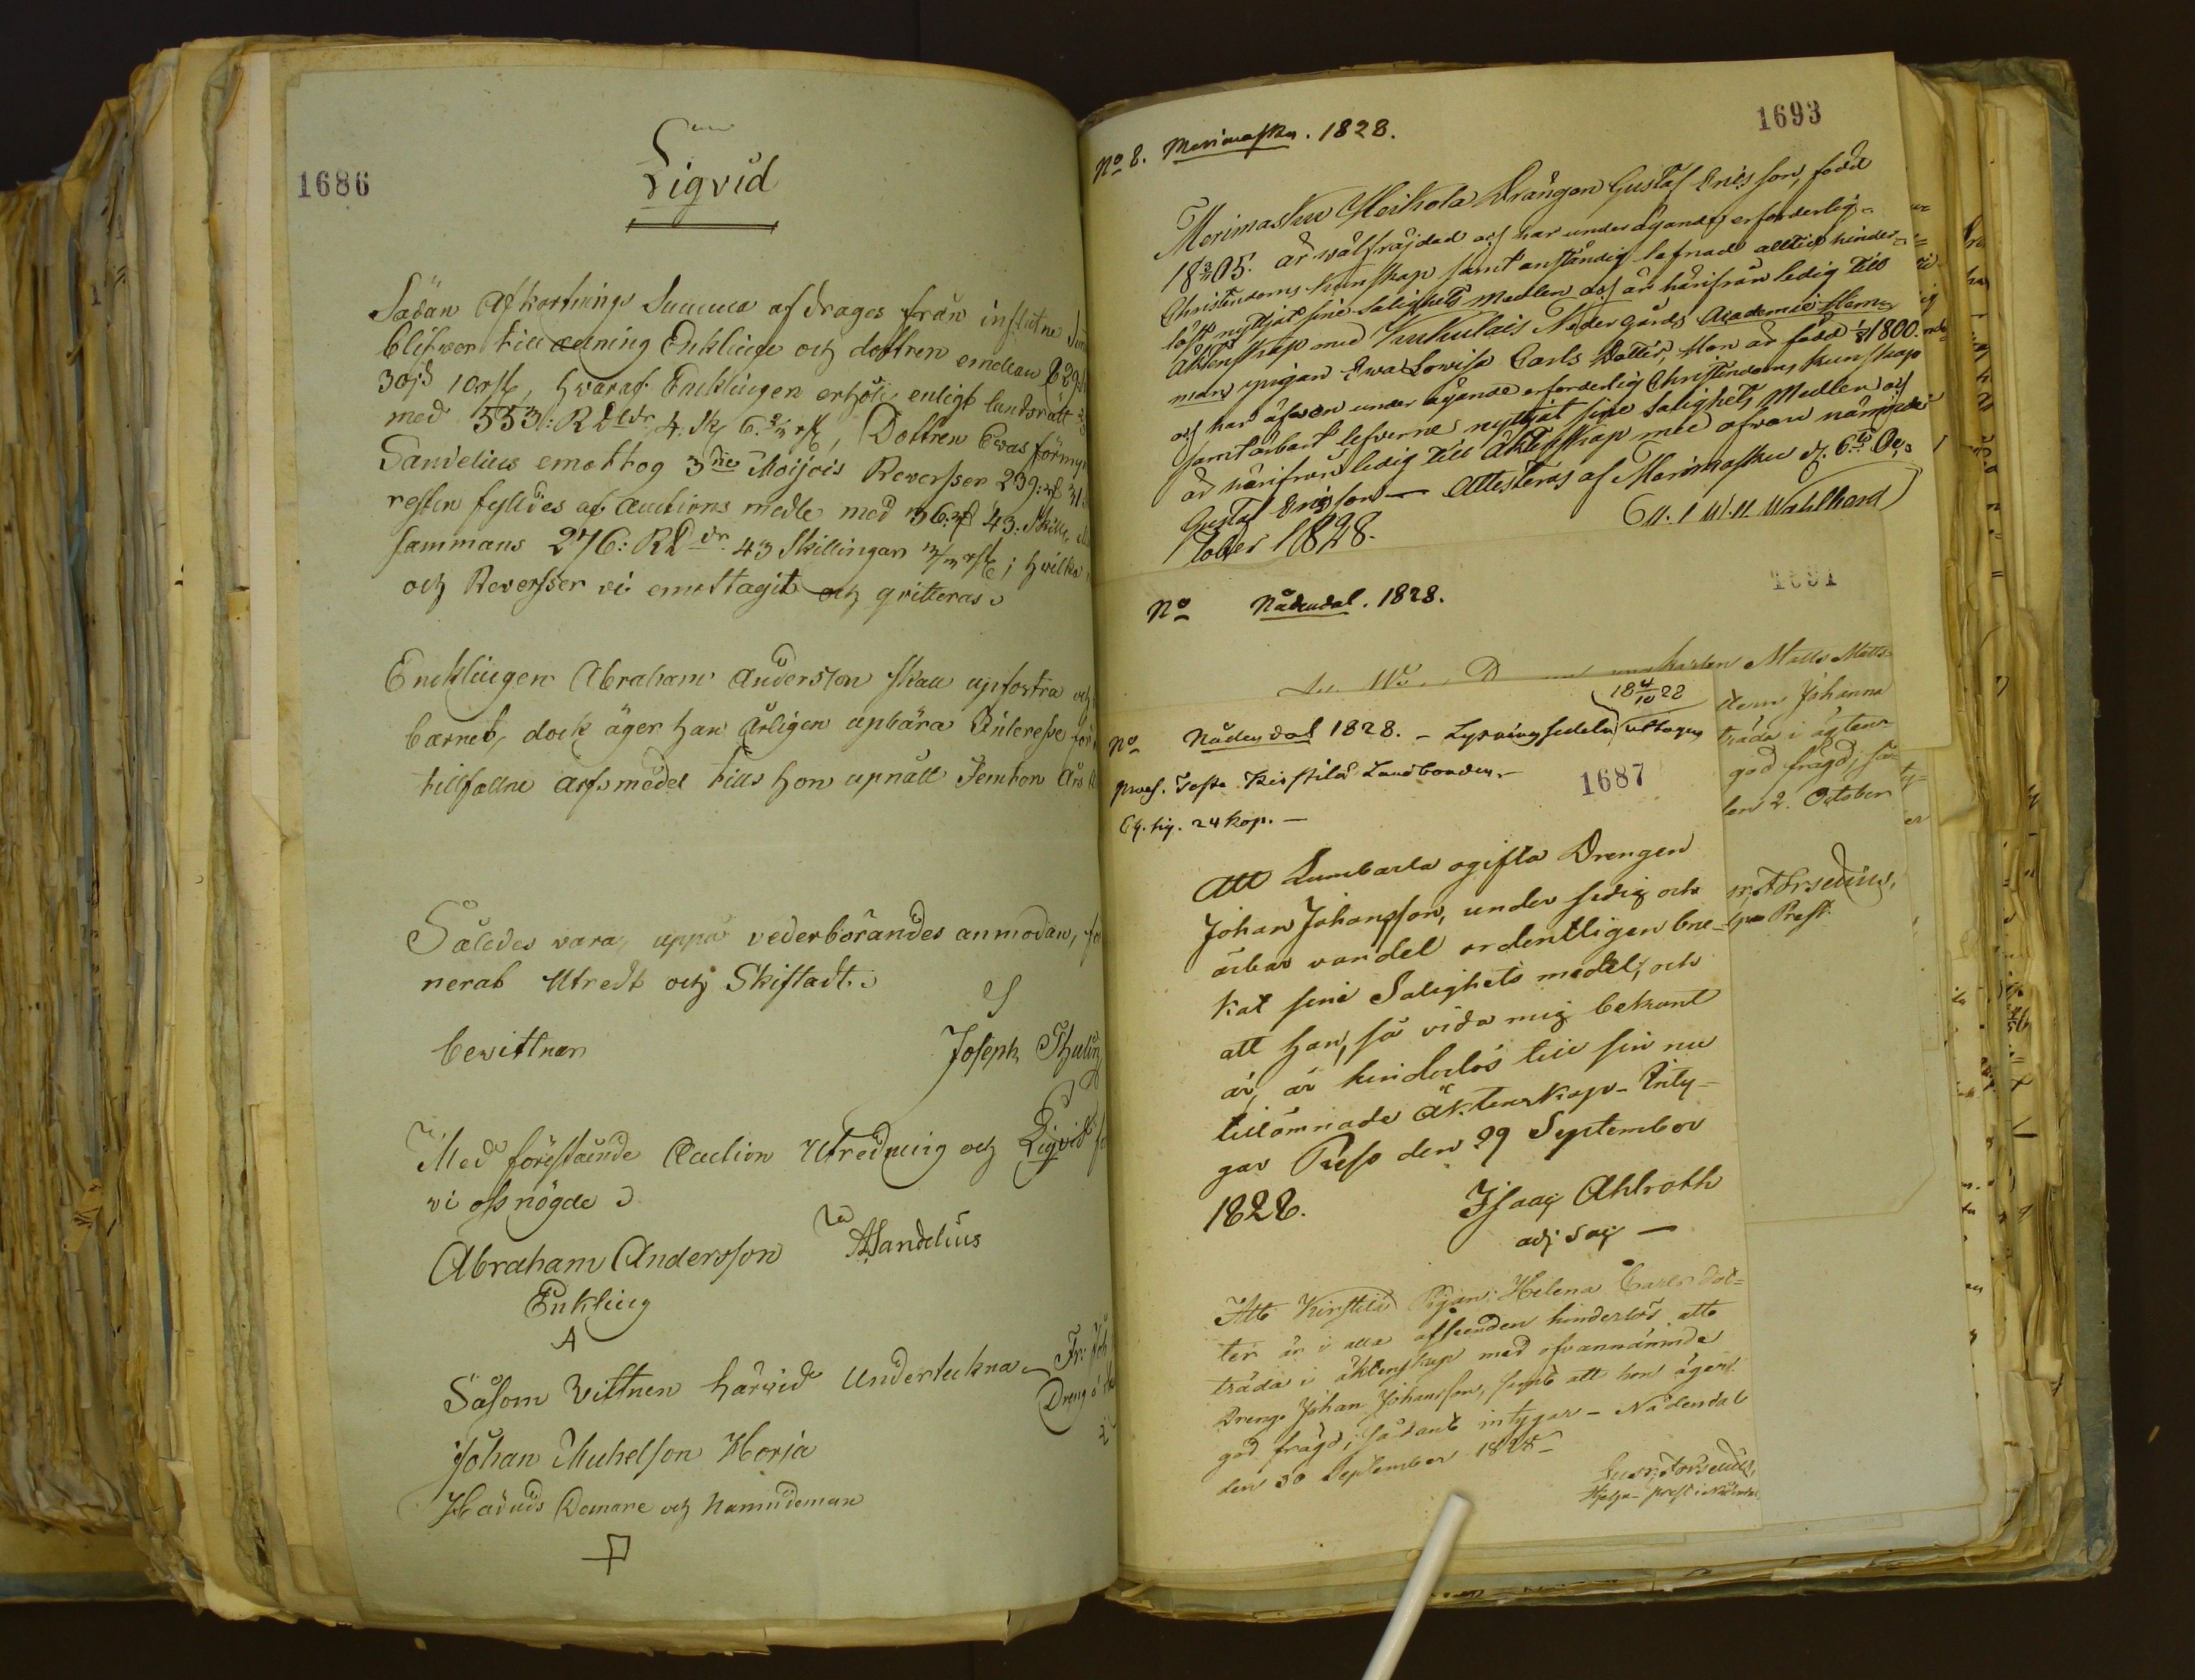 1686
Liqvid
Sedan Afkortnings Summa afdrages från influtne
blifwer till delning Enklingen och dottren emellan 829
30 s 10 rst, hwaraf Encklingen erhöll enligt landsrätt
med 553: RDdr 4. sk 6. 2/3 rst, Dottren Ewas förmyn
Sandelius emottog 3ne Moijois Reverser 239: 31
resten fylldes af Auctions medle med 36. 43. Skill.
sammans 276: RDdr 43 Skillingar rst; hwilka
och Reverser vi emottagit och qvitteras
Encklingen Abraham Andersson skall upfostra och
barnet, dock äger han årligen upbära Interesse för
tillfallne arfsmedel tills hon upnått Femton Års
Således vara, uppå vederbörandes anmodan,
nerat Utredt och Skiftadt.
bewittnar
Joseph Thulin
Med förestående Auction Utredning och Liqvid
vi oss nögde
Abraham Andersson
ASandelius
Enkling
A
Såsom Vittnen härwid Underteckna
Johan Michelson Horja
Härads Domare och Nämndeman
1693
No 8. Merimasku. 1828.
Merimasku Heikola Drängen Gustaf Ericsson, född
1805. är wälfräjdad och har under ägande erforderlig
Christendoms kunskap samt anständig lefnad alltid hinder=
löst nyttjat sine salighets medlen och är härifrån ledig till
Äktenskap med Kukulais Nedergårds Academie Hem=
mans pigan Ewa Lowisa Carls Dotter, Hon är född 1800.
och har äfwen under ägande erforderlig Christendoms kunskap
samt ärbart lefverne nyttjat sine salighets Medlen och
är härifrån ledig till Äktenskap med ofwan nämnde
Gustaf Ericsson — Attesteras af Merimasku d. 6te Oc=
tober 1828.
Wahlberg
No Nådendal. 1828.
1691
karlen Matts Matts
18 4/10 28
No Nådendal 1828. - Lysningssedeln uttagen
Johanna
träda i ägten=
god frägd; så=
den 2. October
Forselius,
Prest.
1687
Kirstilä Landbonden.
24 kop. —
Att Lumbarla ogifta Drengen
Johan Johansson, under sedig och
ärbar vandel ordentligen bru=
kat sine Salighets medel; och
att han, så vida mig bekant
är, är hinderlös till sin nu
tillämnade Äktenskap - Inty=
gar Reso den 29 September
1828.
Isaac Ahlroth
adj Sac —
Att Kirstilä Pigan Helena Carlsdot=
ter är i alla afseenden hinderlös att
träda i äktenskap med ofvannämnde
Dreng Johan Johansson, samt att hon äger
god frägd; sådant intygar - Nådendal
den 30 September 1828 —
Forselius,
Hjelp-prest i Nådendal.